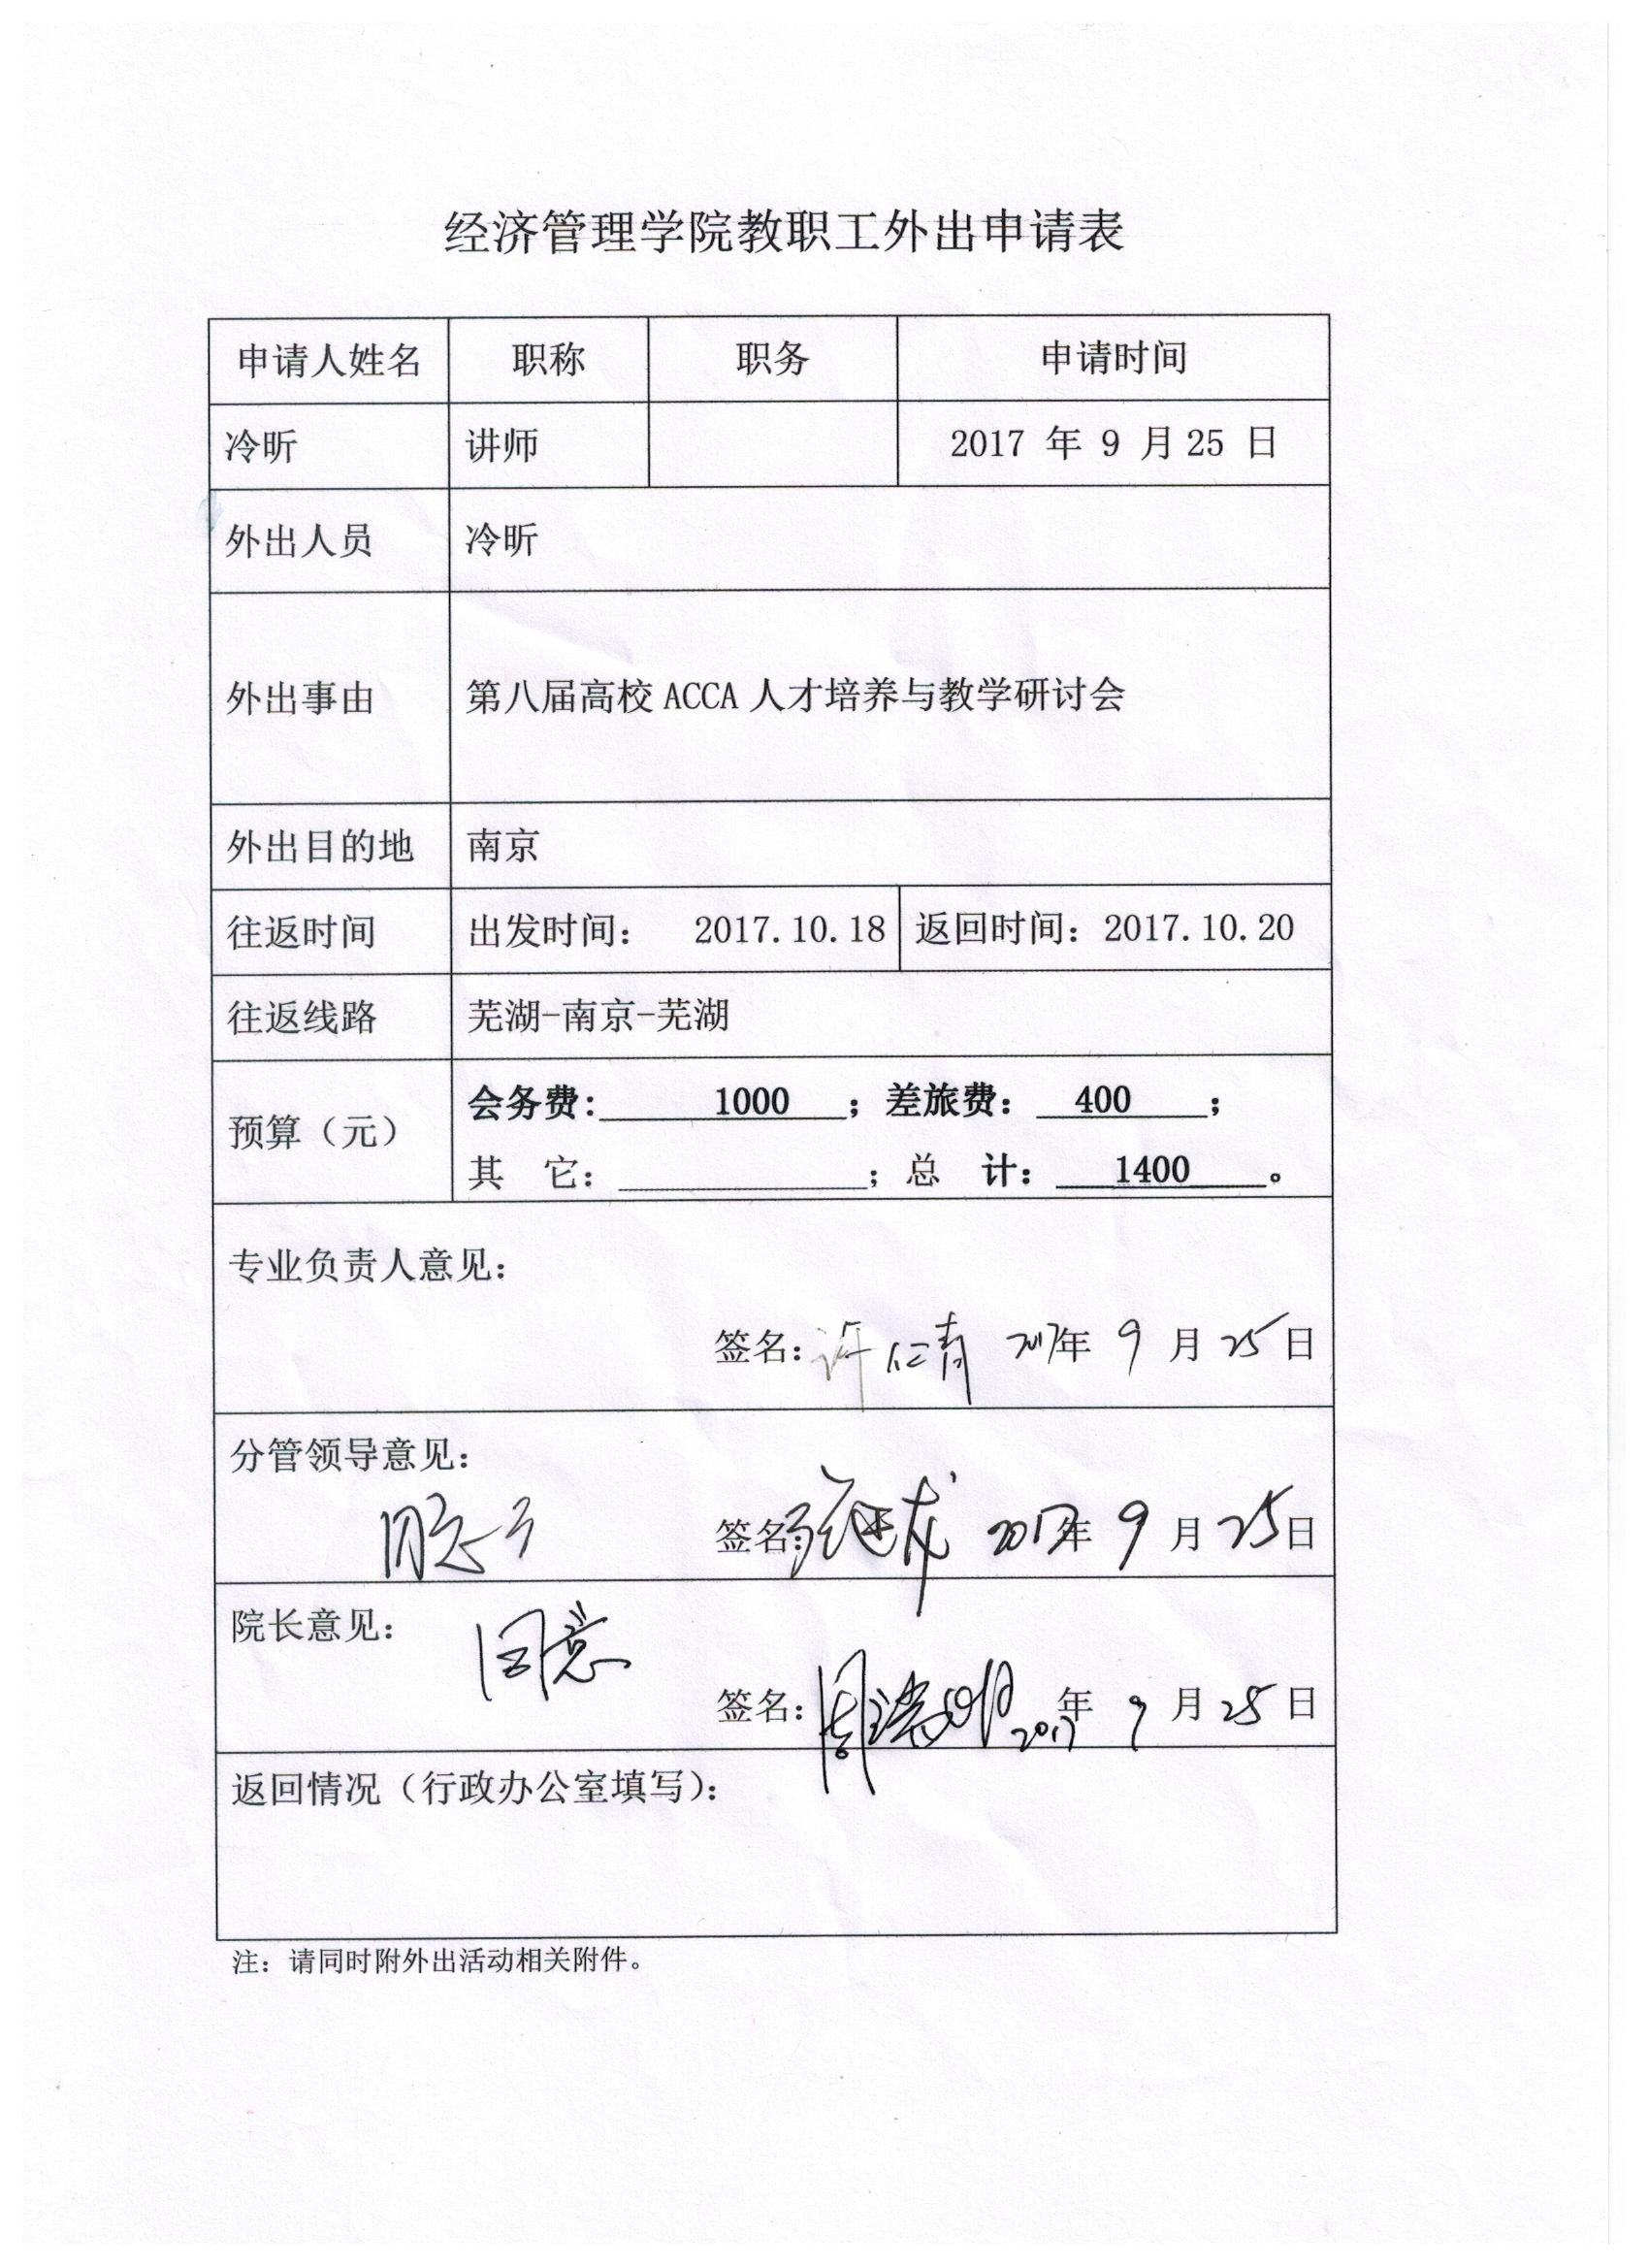 经济管理学院教职工外出申请表
申请人姓名 职称 职务 申请时间
冷昕 讲师 2017 年 9 月 25 日
外出人员 冷昕
外出事由 第八届高校 ACCA 人才培养与教学研讨会
外出目的地 南京
往返时间 出发时间： 2017.10.18 返回时间：2017.10.20
往返线路 芜湖-南京-芜湖
预算（元） 会务费： 1000 ；差旅费： 400 ；
其 它： ；总 计： 1400 。
专业负责人意见：
签名： 2017年 9 月 25 日
分管领导意见：
同意
签名： 2017年 9 月 25 日
院长意见： 同意
签名： 2017年 9 月 25 日
返回情况（行政办公室填写）：
注：请同时附外出活动相关附件。